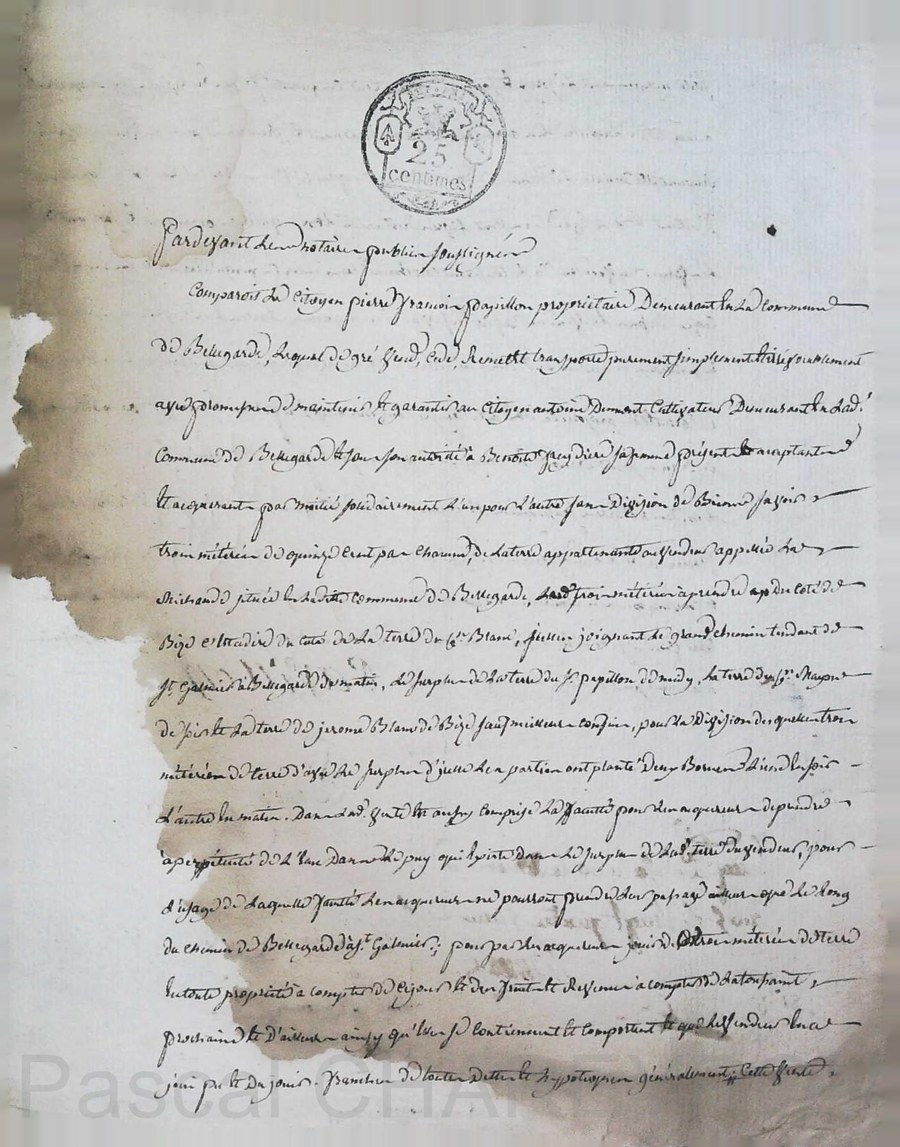 25
centimes
Pardevant les notaires publics soussignés
Comparoit Le Citoyen pierre francois papillon propriétaire Demeurant en La commune
de Bellegarde, Lequel de gré vend, cede, Remet et transporte purement simplement et irrévocablement
avec promesse de maintenir et garantir au Citoyen antoine Dumont Cultivateur Demeurant en Lad.
Commune de Bellegarde et sous son autorité à Benoite sa femme présents et acceptants
et acquerant par moitié solidairement L'un pour L'autre sans Division de Biens savoir
trois métérées de quinze cent pas chacune, de La terre appartenante au vendeur appellée La
Michaude située en Ladite Commune de Bellegarde, Lesd. trois métérées à prendre du coté de
Bize c'est a dire du coté de La terre du Blanc, joignant Le grand chemin tendant de
St. Galmier à Bellegarde de matin, Le surplus de La terre du S. papillon de midy, La terre du
de soir et La terre de jerome Blanc de Bize sauf meilleurs confins, pour La Division desquelles trois
métérées de terre d'avec Le surplus d'icelle Les parties ont planté Deux Bornes L'une en soir
L'autre en matin. Dans Lad. vente est aussy comprise La faculté pour Les acquereurs de prendre
a perpétuité de L'eau Dans Le puy qui existe dans Le surplus de Lad. terre du vendeur, pour
L'usage de Laquelle faculté Les acquereurs ne pourront prendre Leur passage ailleurs que Le Long
du chemin de Bellegarde à St. Galmier; pour par Les acquereurs jouir des trois métérées de terre
en toute propriété à compter de ce jour et des fruits et Revenus à compter de La toussaint
prochaine et D'ailleurs ainsy qu'elles se contiennent et comportent et que Le vendeur en a
joui pu et du jouir. franches de toutes Dettes et hypoteques généralement; Cette vente
Pascal CHA